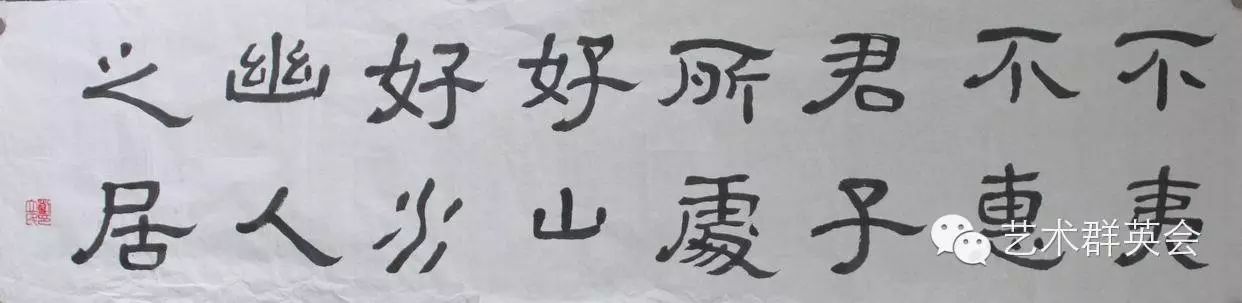 不夷
不惠
君子
所處
好山
好水
幽人
之居
艺术群英会